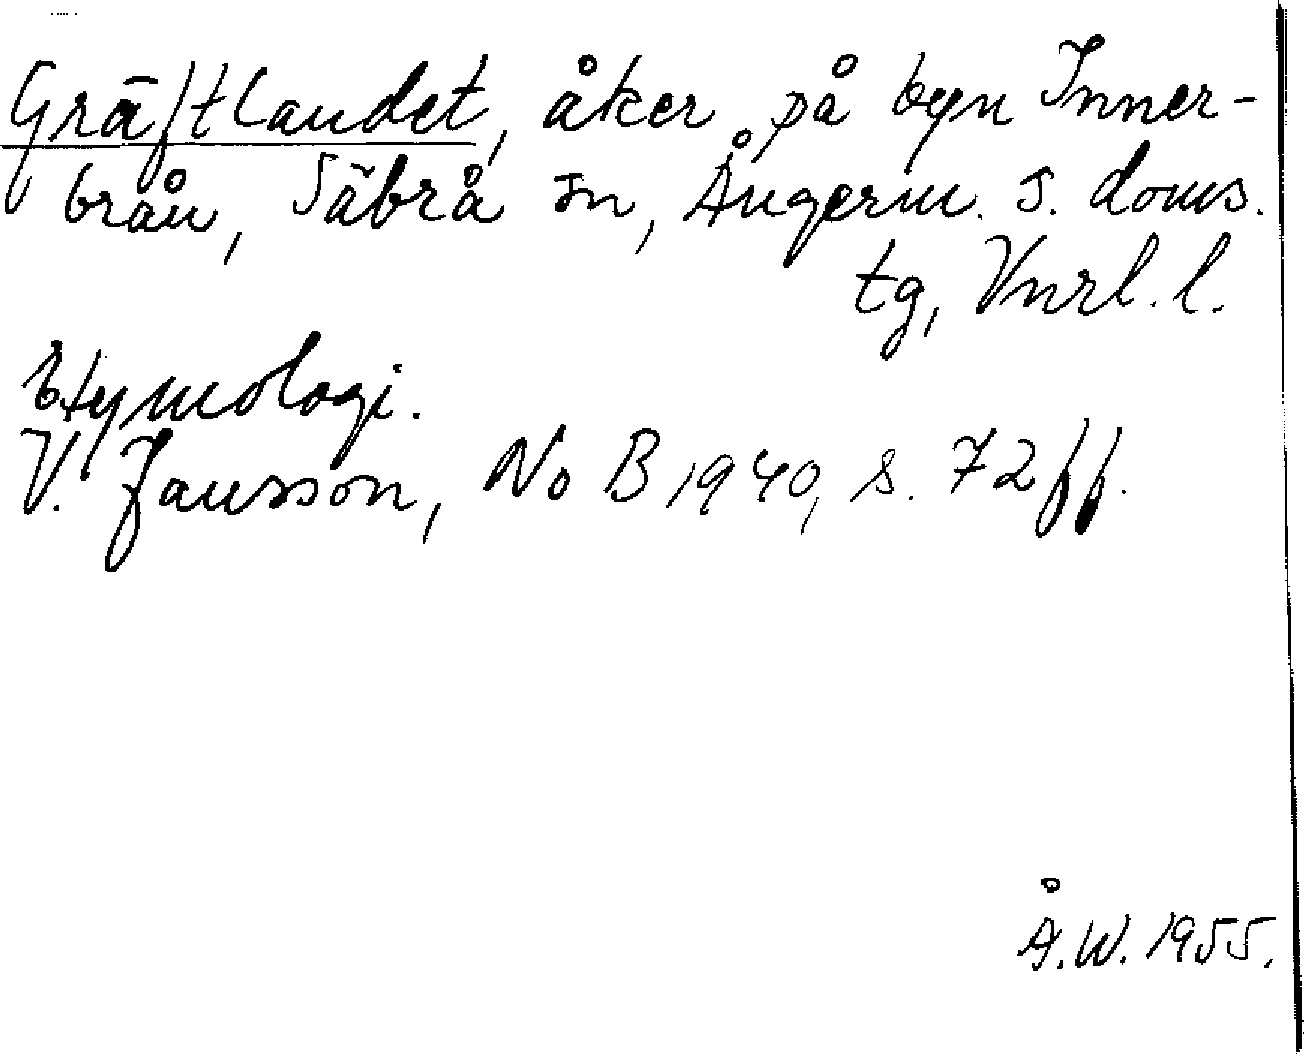 Gräftlandet, åker på byn Inner-
brån, Säbrå sn, Ångerm. s. doms.
tg, Vnrl. l.
Etymologi.
V. Jansson, NoB 1940, s. 72 ff.
Å.W. 1955.